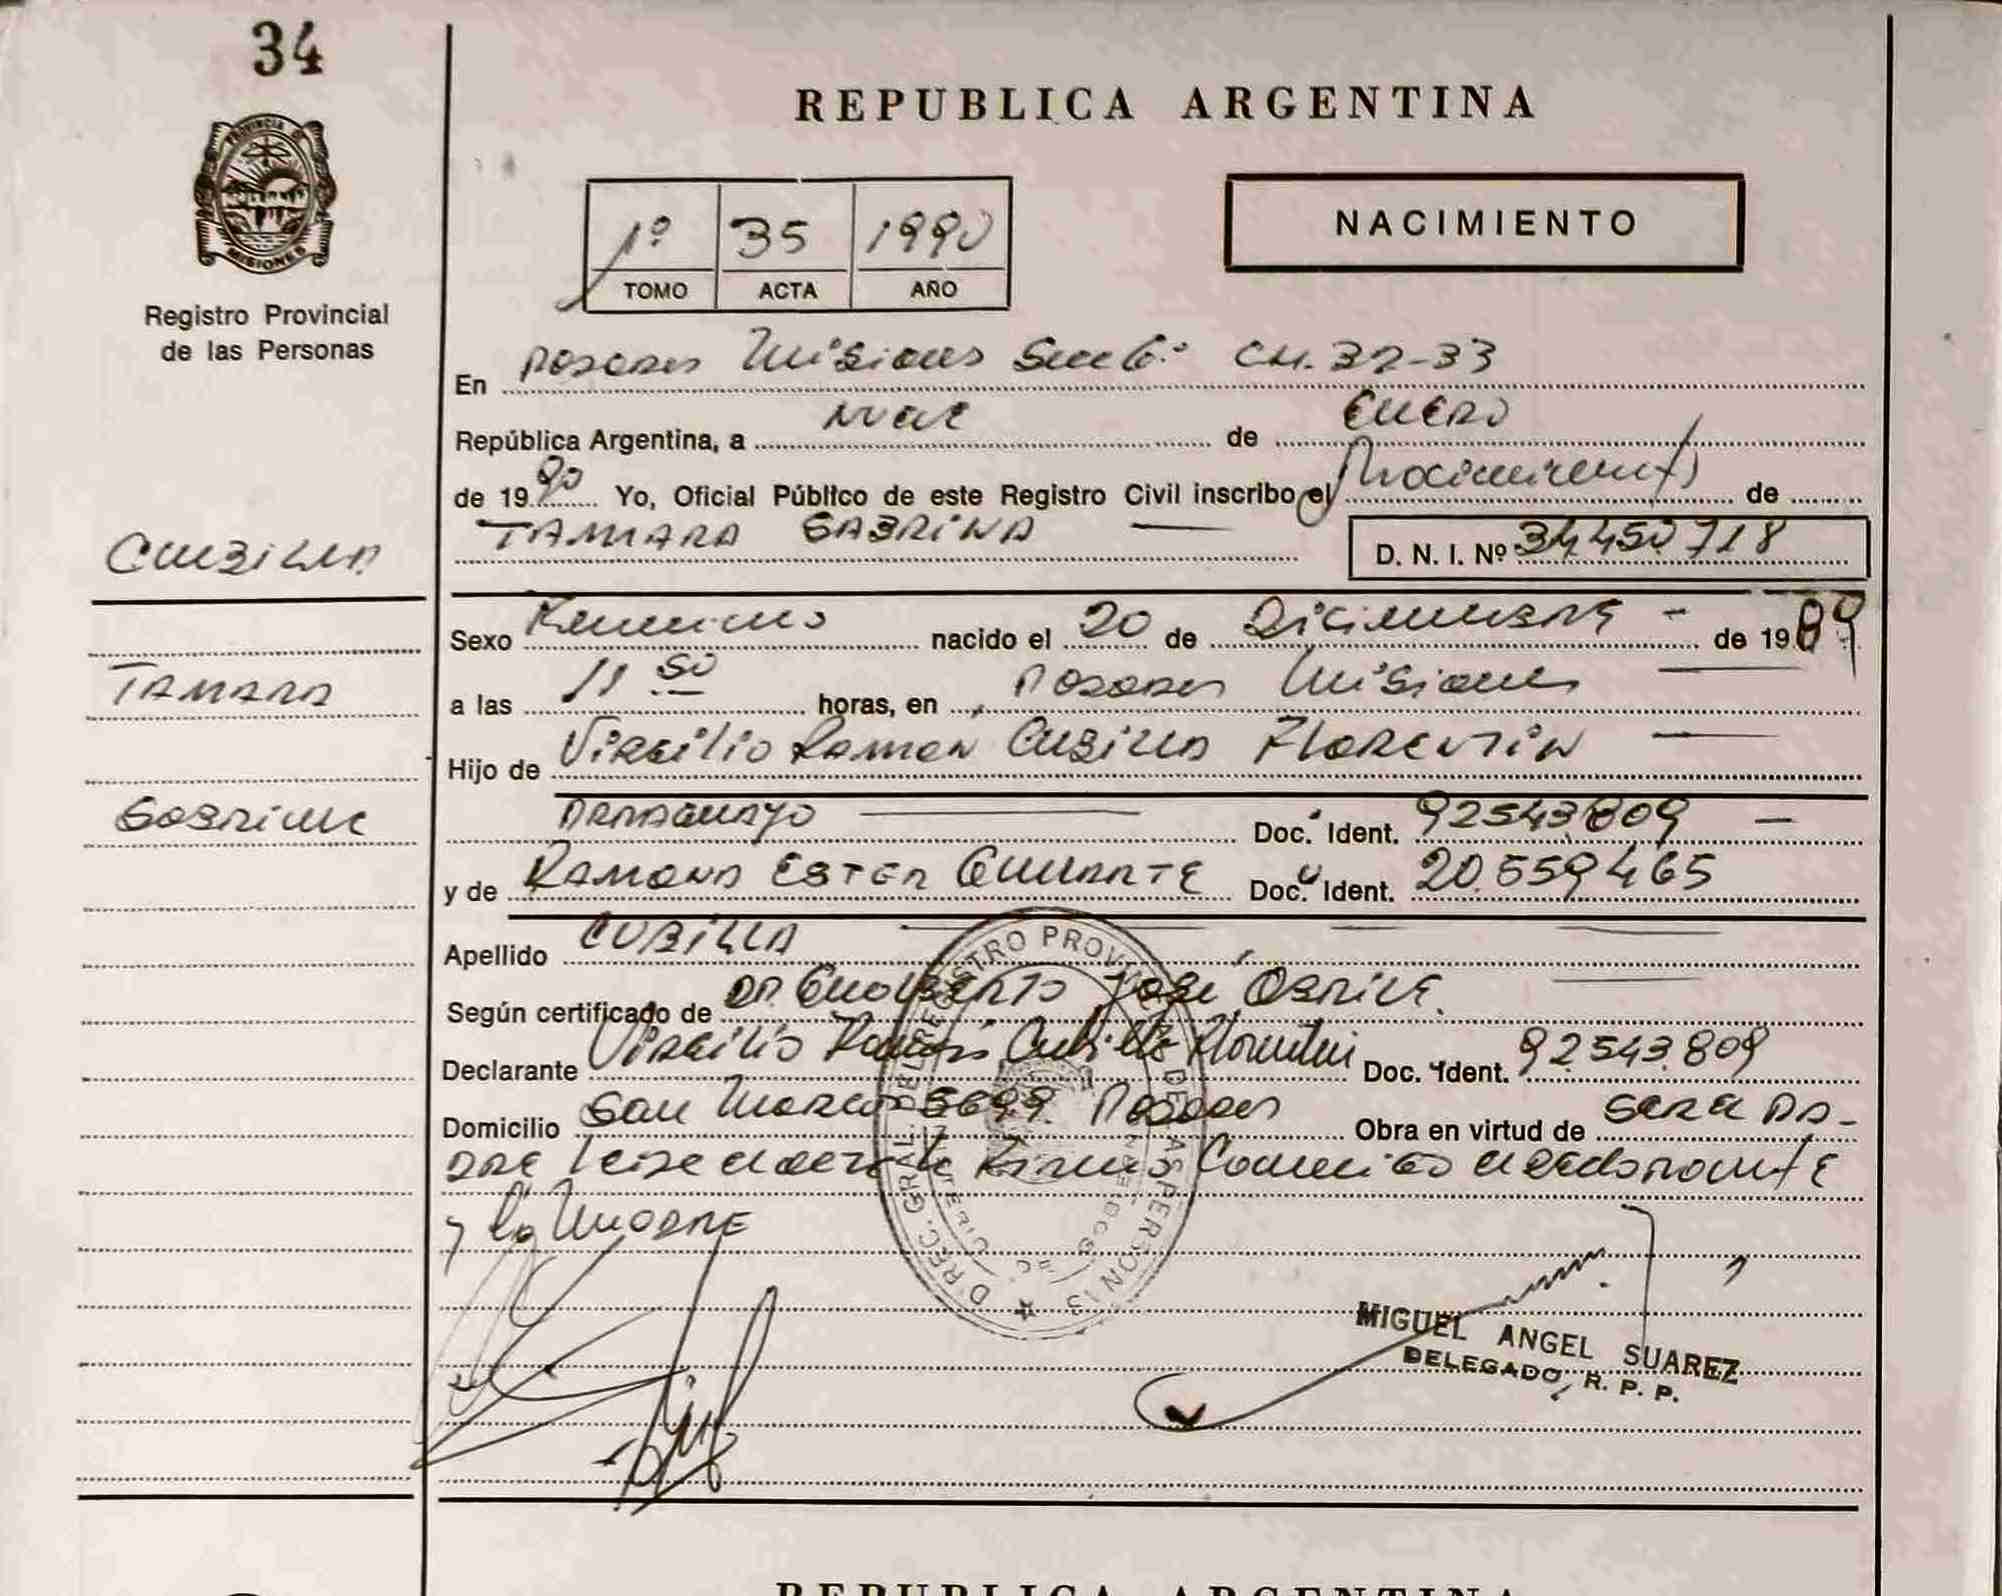 34
PROVINCIA D
MISIONES
Registro Provincial
de las Personas
REPUBLICA ARGENTINA
1º 35 1990
TOMO ACTA AÑO
NACIMIENTO
En Posadas Misiones Secc 6ª CM. 32-33
República Argentina, a nueve de Enero
de 1990 Yo, Oficial Público de este Registro Civil inscribo el Nacimiento de
TAMARA SABRINA D. N. I. Nº 34.450718
CUBILLA
TAMARA
SABRINA
Sexo Femenino nacido el 20 de Diciembre - de 1989
a las 11 50 horas, en Posadas Misiones
Hijo de Virgilio Ramon Cubilla Florentin
Paraguayo Doc. Ident. 92543809 -
y de Ramona Ester Duuarte Doc. Ident. 20.559465
Apellido CUBILLA
Según certificado de DR. José
Declarante Virgilio Ramon Cubilla Florentin Doc. Ident. 92.543.809
Domicilio San Marcos 5699 Posadas Obra en virtud de ser el pa-
dre Firma Conmigo el declarante
y la Madre
DIREC. GRAL. DEL REGISTRO PROVINCIAL DE LAS PERSONAS
MIGUEL ANGEL SUAREZ
DELEGADO R. P. P.
REPUBLICA ARGENTINA